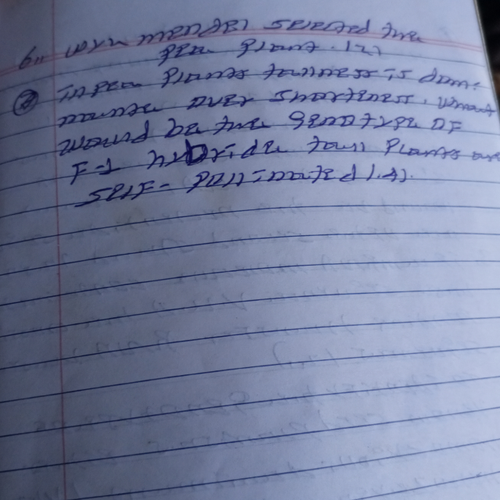 6" Why mendel selected the
pea plant. (2)
(7) in pea plants tallness is domi
nante over shorteness. what
would be the genotype of
F-1 hybride tall plants are
self- pollinated (2).